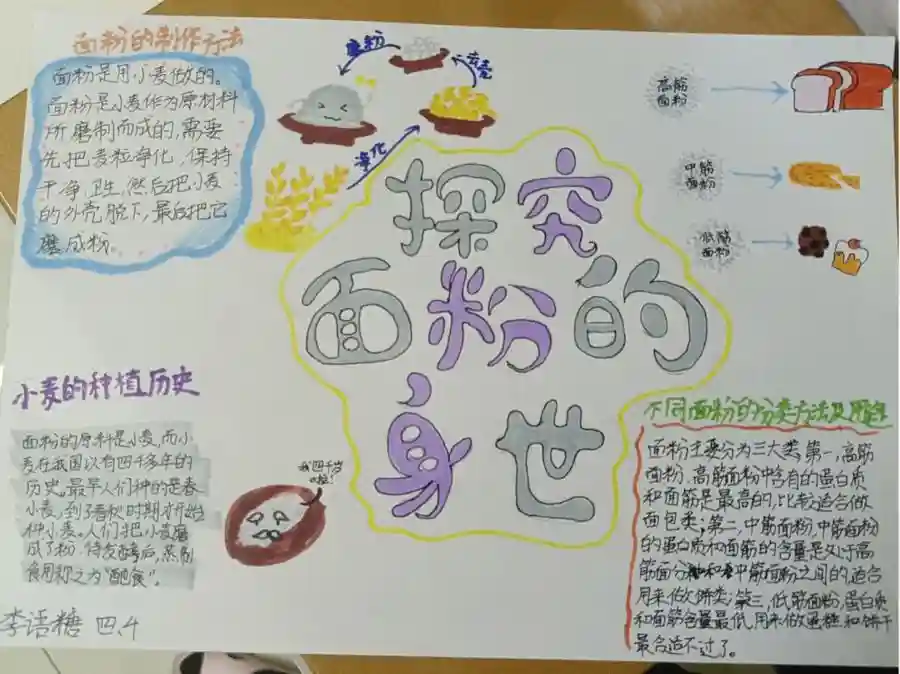 面粉的制作方法
面粉是用小麦做的。
面粉是小麦作为原材料
所磨制而成的,需要
先把麦粒净化,保持
干净,卫生,然后把小麦
的外壳脱下,最后把它
磨成粉。
磨粉
去壳
净化
高筋
面粉
中筋
面粉
低筋
面粉
探究
面粉的
身世
小麦的种植历史
面粉的原料是小麦,而小
麦在我国以有四千多年的
历史。最早人们种的是春
小麦,到了春秋时期才开始
种小麦。人们把小麦磨
成了粉,待发酵后,蒸制
食用称之为
我四千岁
啦!
不同面粉的分类方法及
面粉主要分为三大类,第一,高筋
面粉,高筋面粉中含有的蛋白质
和面筋是最高的,比较适合做
面包类;第二,中筋面粉,中筋面粉
的蛋白质和面筋的含量是处于高
筋面分和中筋面粉之间的,适合
用来做饼类;第三,低筋面粉,蛋白质
和面筋含量最低,用来做蛋糕和饼干
最合适不过了。
李语糖 四.4